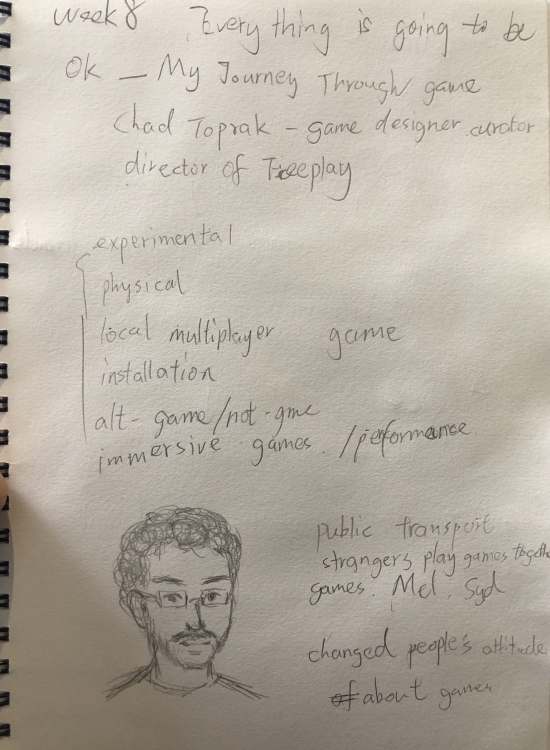 Week 8 Every thing is going to be
OK — My Journey Through game
Chad Toprak - game designer. curator
director of Freeplay
experimental
physical
local multiplayer game
installation
alt-game/not-gme
immersive games. /performance
public transport
strangers play games togethe
games. Mel. Syd
changed people's attitude
of about games